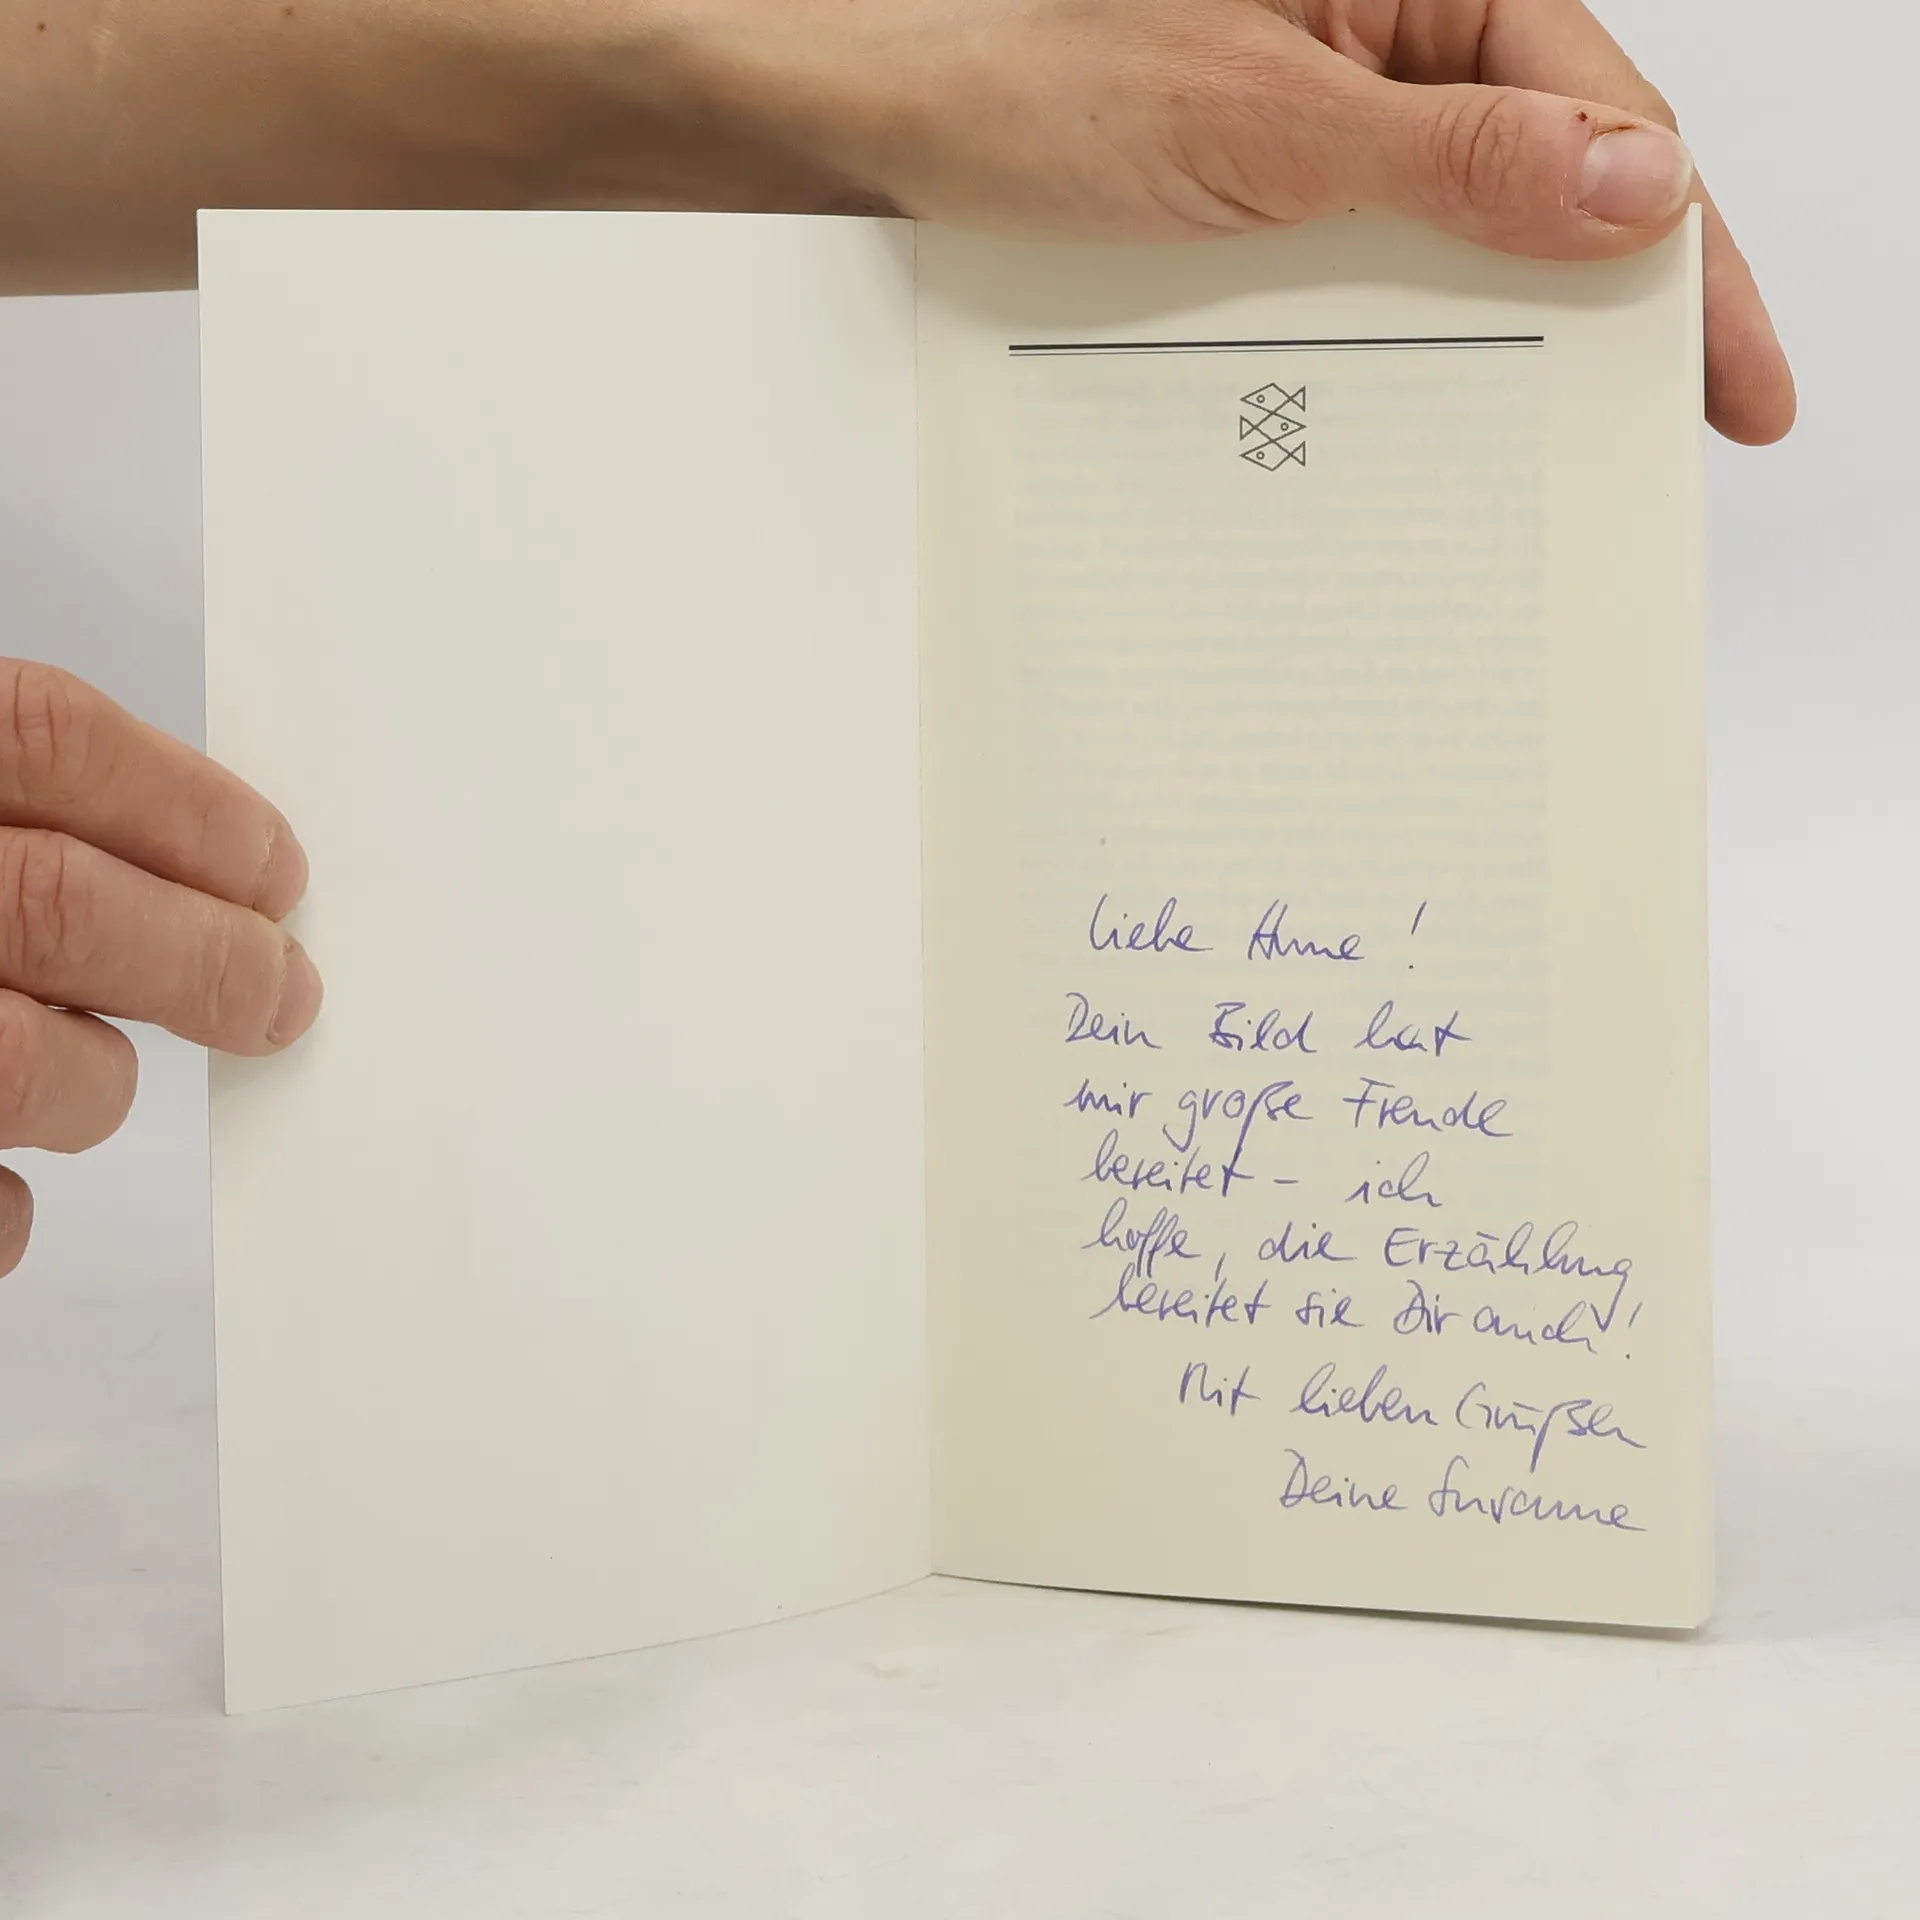 Liebe Anne !
Dein Bild hat
mir große Freude
bereitet – ich
hoffe, die Erzählung
bereitet sie Dir auch!
Mit lieben Grüßen
Deine Susanne